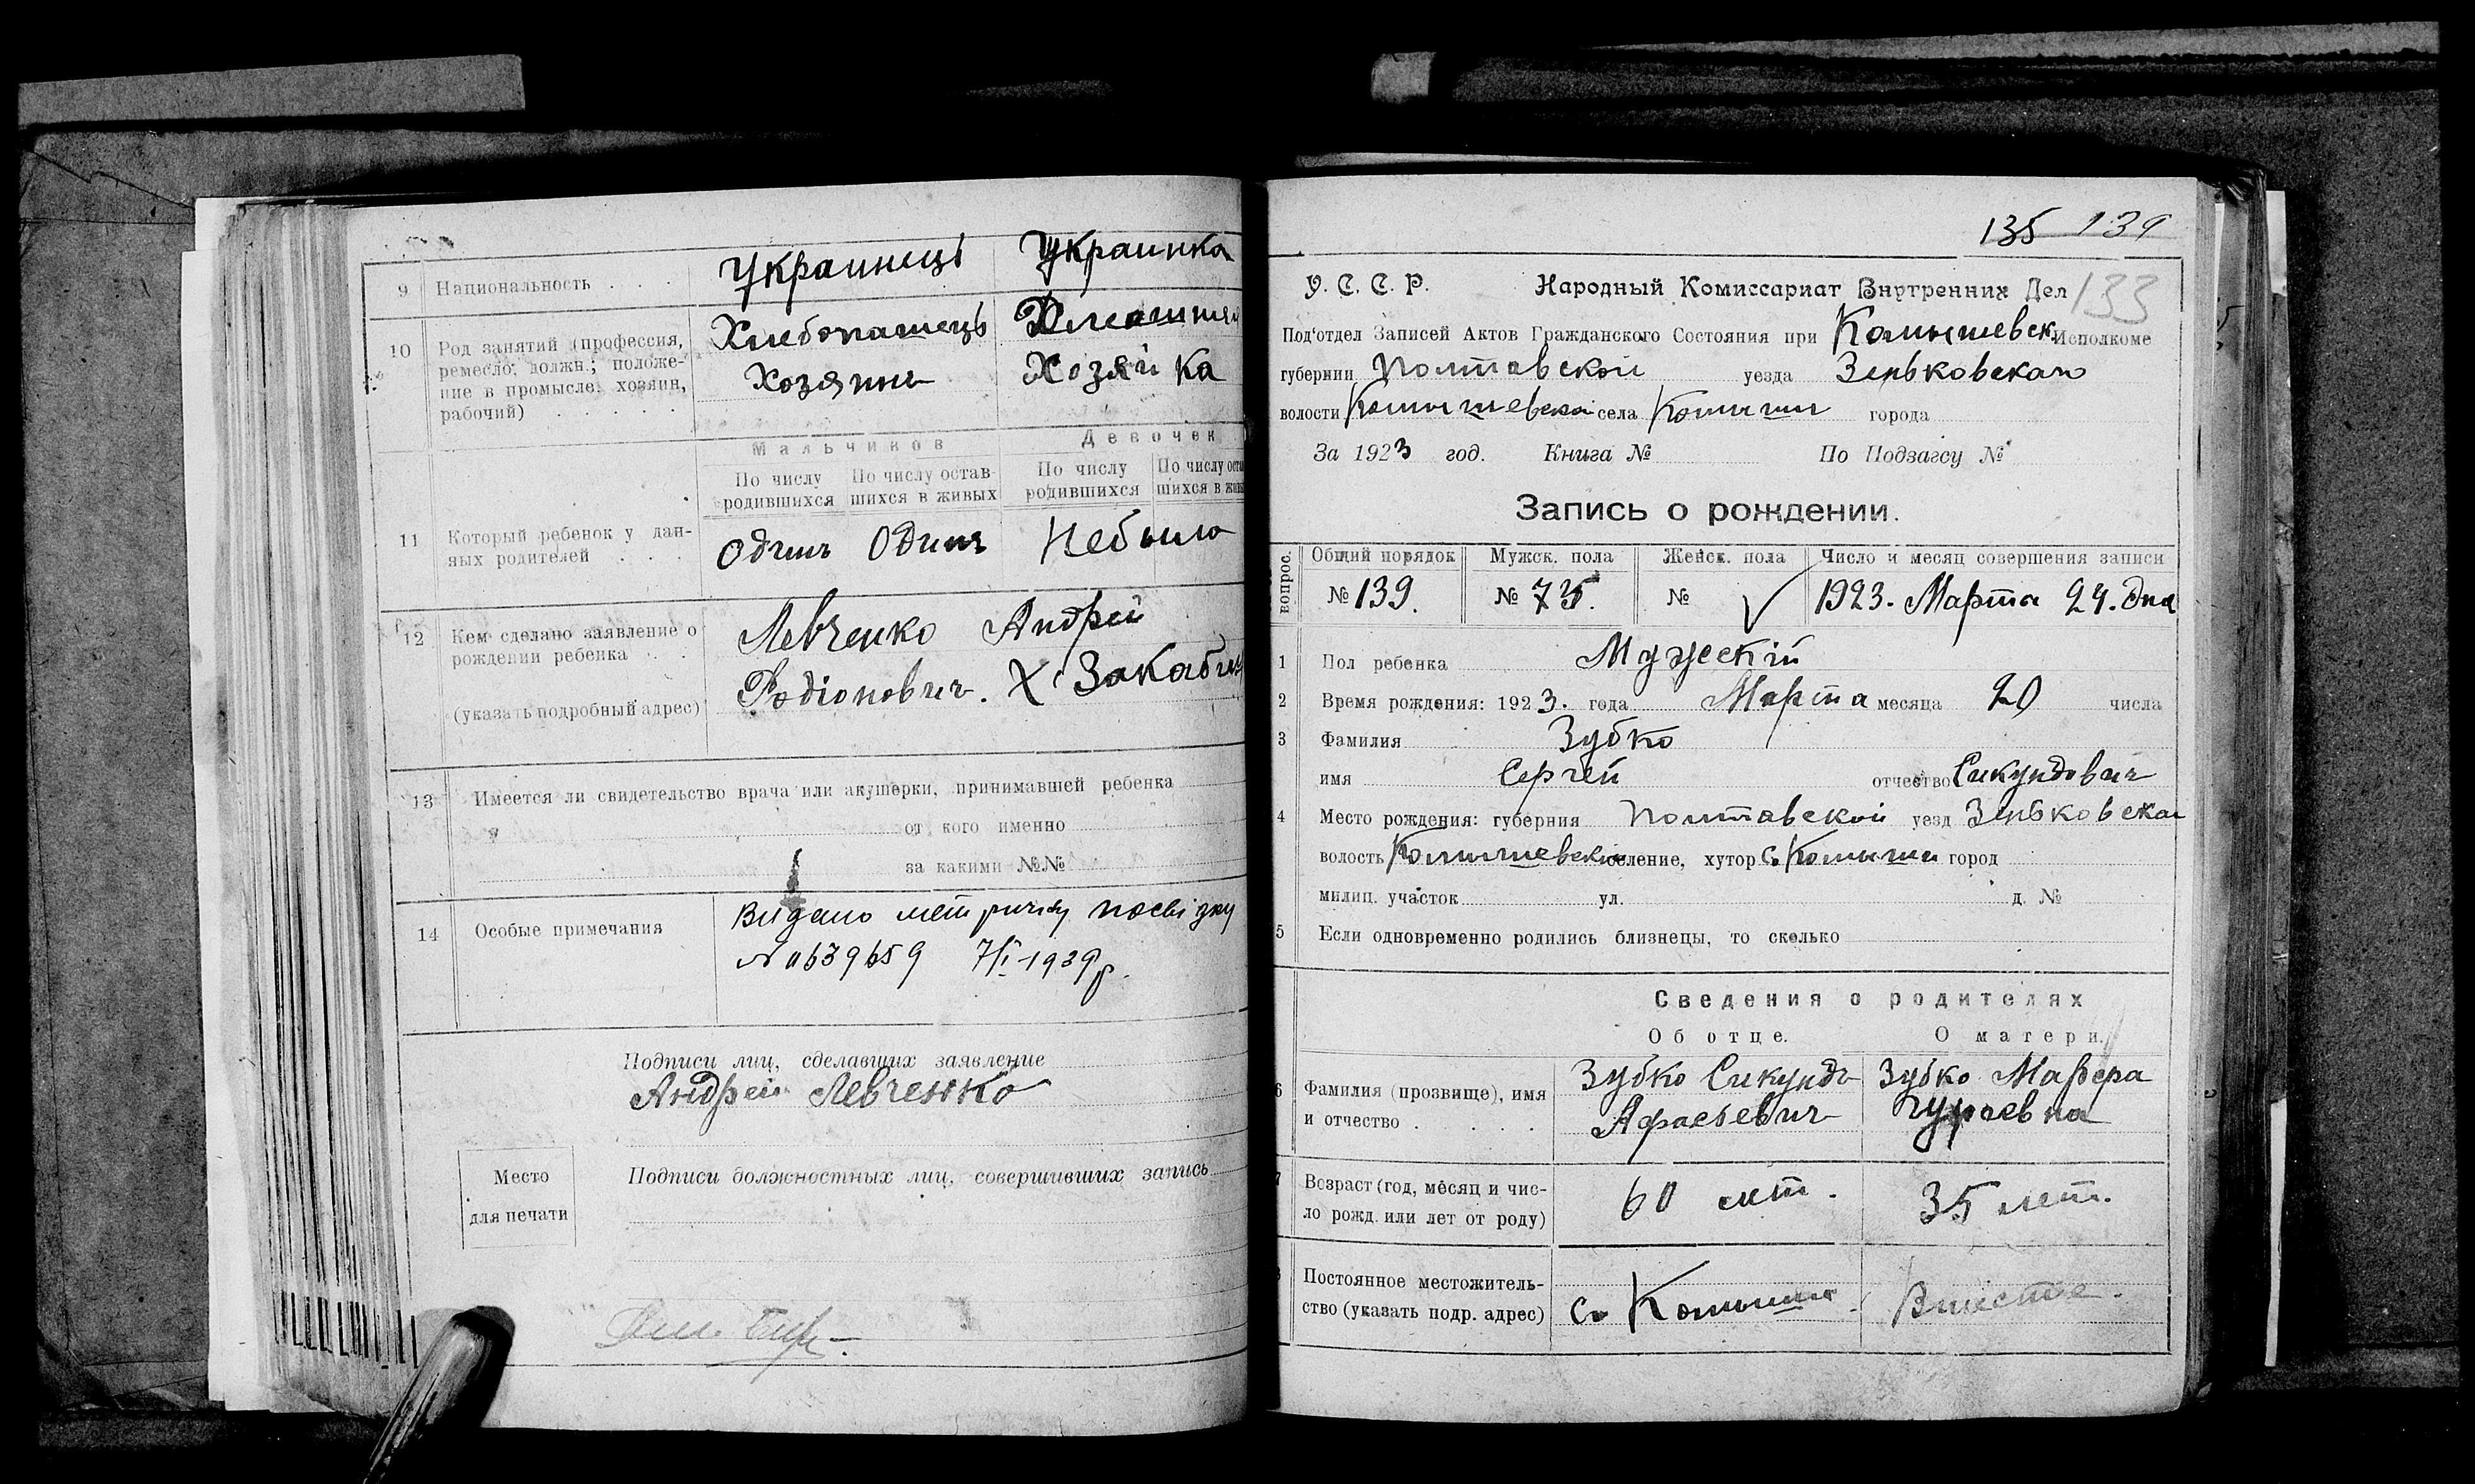 9 Национальность . . . Украинецъ Украинка
10 Род занятий (профессия, ремесло, должн.; положение в промысле, хозяин, рабочий) . . . . .
Хлебопашецъ Домашняя
Хозяинъ Хозяйка
Мальчиков Девочек
По числу родившихся По числу оставшихся в живых По числу родившихся По числу оста шихся в жив
11 Который ребенок у данных родителей . . . Одинъ Одинъ Небыло
12 Кем сделано заявление о рождении ребенка . .
(указать подробный адрес)
Левченко Андрей
Родіоновичъ. Х.
13 Имеется ли свидетельство врача или акушерки, принимавшей ребенка
от кого именно
за какими №№
14 Особые примечания
Видано метричну посвідку
7/I-1939р.
Подписи лиц, сделавших заявление
Андрей Левченко
Место для печати
Подписи должностных лиц, совершивших запись
135 139
133
У. С. С. Р. Народный Комиссариат Внутренних Дел
Под'отдел Записей Актов Гражданского Состояния при Комышевск Исполкоме
губернии Полтавской уезда Зеньковскаго
волости Комышевской села Комыши города
За 1923 год. Книга № По Подзагсу №
Запись о рождении.
вопрос. Общий порядок Мужск. пола Женск. пола Число и месяц совершения записи
№ 139. № 75. № 1923. Марта 24. дня
1 Пол ребенка Мужескій
2 Время рождения: 1923. года Марта месяца 20 числа
3 Фамилия Зубко
имя Сергей отчество Сикундовичъ
4 Место рождения: губерния Полтавской уезд Зеньковскаго
волость Комышевской селение, хутор с. Комыши город
милиц. участок ул. д. №
5 Если одновременно родились близнецы, то сколько
Сведения о родителях
Об отце. О матери.
6 Фамилия (прозвище), имя и отчество . . . . .
Зубко Сикундъ Зубко Марфа
Гурьевна
7 Возраст (год, месяц и число рожд. или лет от роду) 60 лет. 35 лет.
Постоянное местожительство (указать подр. адрес) с. Комыши Вместе.